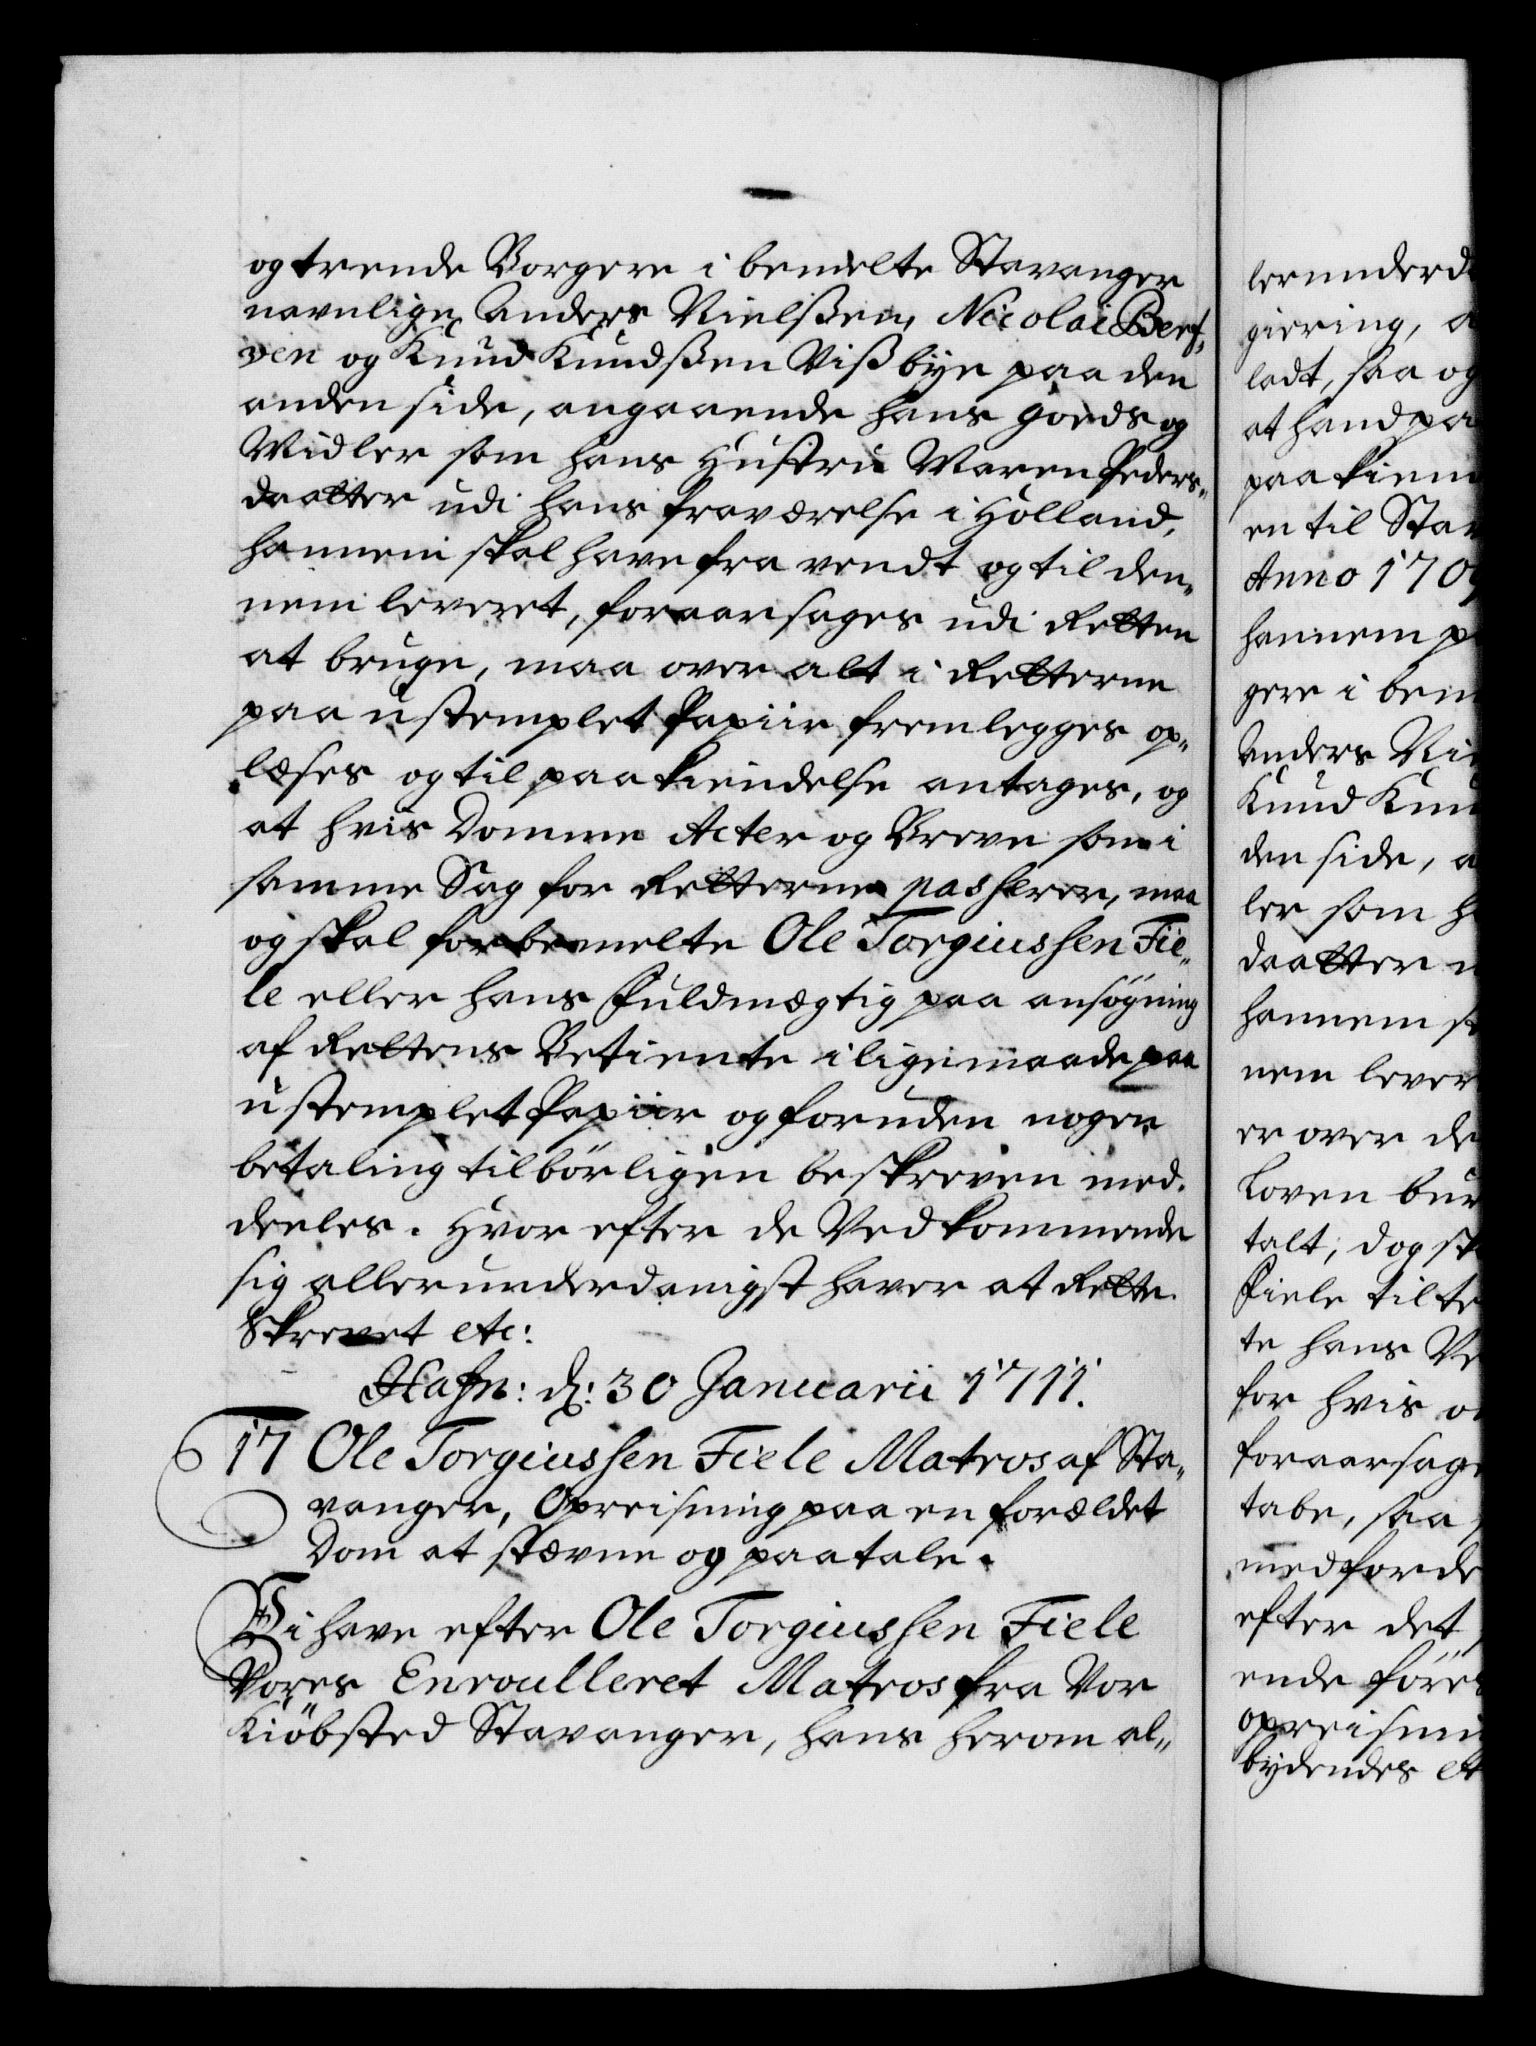 og trende Borgere i bemelte Stavanger
navnlige Anders Nielßen, Nicolai Berf„
ven og Knud Knudßen Wißbye paa den
anden side, angaaende hans goeds og
Midler som hans Hustru Maren Peders„
daatter udi hans fraværelse i Holland,
hannem skal have fra vendt og til den„
nem leveret, foraarsages udi Retten
at bruge, maa over alt i Retterne
paa ustemplet Papiir fremlegges op„
læses og til paakiendelse antages, og
at hvis Domme Acter og Breve som i
samme Sag for Retterne passerer, maa
og skal forbemelte Ole Torgiussen Fie„
le eller hans Fuldmægtig paa ansøgning
af Rettens Betiente i ligemaade paa
ustemplet Papiir og foruden nogen
betaling tilbørligen beskreven med„
deeles. Hvor efter de Vedkommende
sig allerunderdanigst haver at Rette.
Skrevet etc:
Hafn: d: 30 Januarii 1711.
17 Ole Torgiussen Fiele Matros af Sta„
vanger, Opreisning paa en forældet
Dom at stævne og paatale.
Vi have efter Ole Torgiussen Fiele
Vores Enroulleret Matros fra Vor
Kiøbsted Stavanger, hans herom al„
lerunderd
giering, a
ladt, saa og
at hand paa
paakiend
en til Stav
Anno 1709
hannem p
gere i bem
Anders Nie
Knud Knu
den side, a
ler som h
daatter u
hannem s
nem lever
er over de
Loven bur
talt, dog sk
Fiele tilte
te hans Ve
for hvis o
foraarsage
tabe, saa
med forde
efter det
ende føre
opreisnin
bydendes et